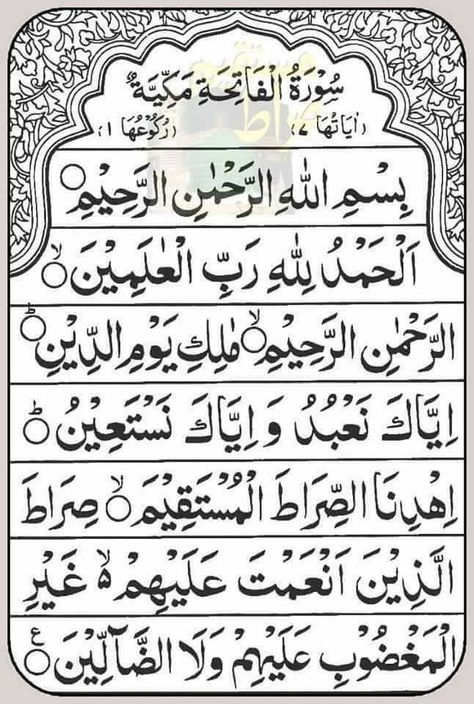 سُوْرَةُ الْفَاتِحَةِ مَكِّيَّةٌ
(اٰيَاتُهَا ٧) (رُكُوْعُهَا ١)
بِسْمِ اللّٰهِ الرَّحْمٰنِ الرَّحِيْمِ ۝
اَلْحَمْدُ لِلّٰهِ رَبِّ الْعٰلَمِيْنَ ۝ۙ
الرَّحْمٰنِ الرَّحِيْمِ ۝ۙ مٰلِكِ يَوْمِ الدِّيْنِ ۝ؕ
اِيَّاكَ نَعْبُدُ وَ اِيَّاكَ نَسْتَعِيْنُ ۝ؕ
اِهْدِنَا الصِّرَاطَ الْمُسْتَقِيْمَ ۝ۙ صِرَاطَ
الَّذِيْنَ اَنْعَمْتَ عَلَيْهِمْ ۙ۵ غَيْرِ
الْمَغْضُوْبِ عَلَيْهِمْ وَلَا الضَّآلِّيْنَ ۝ع